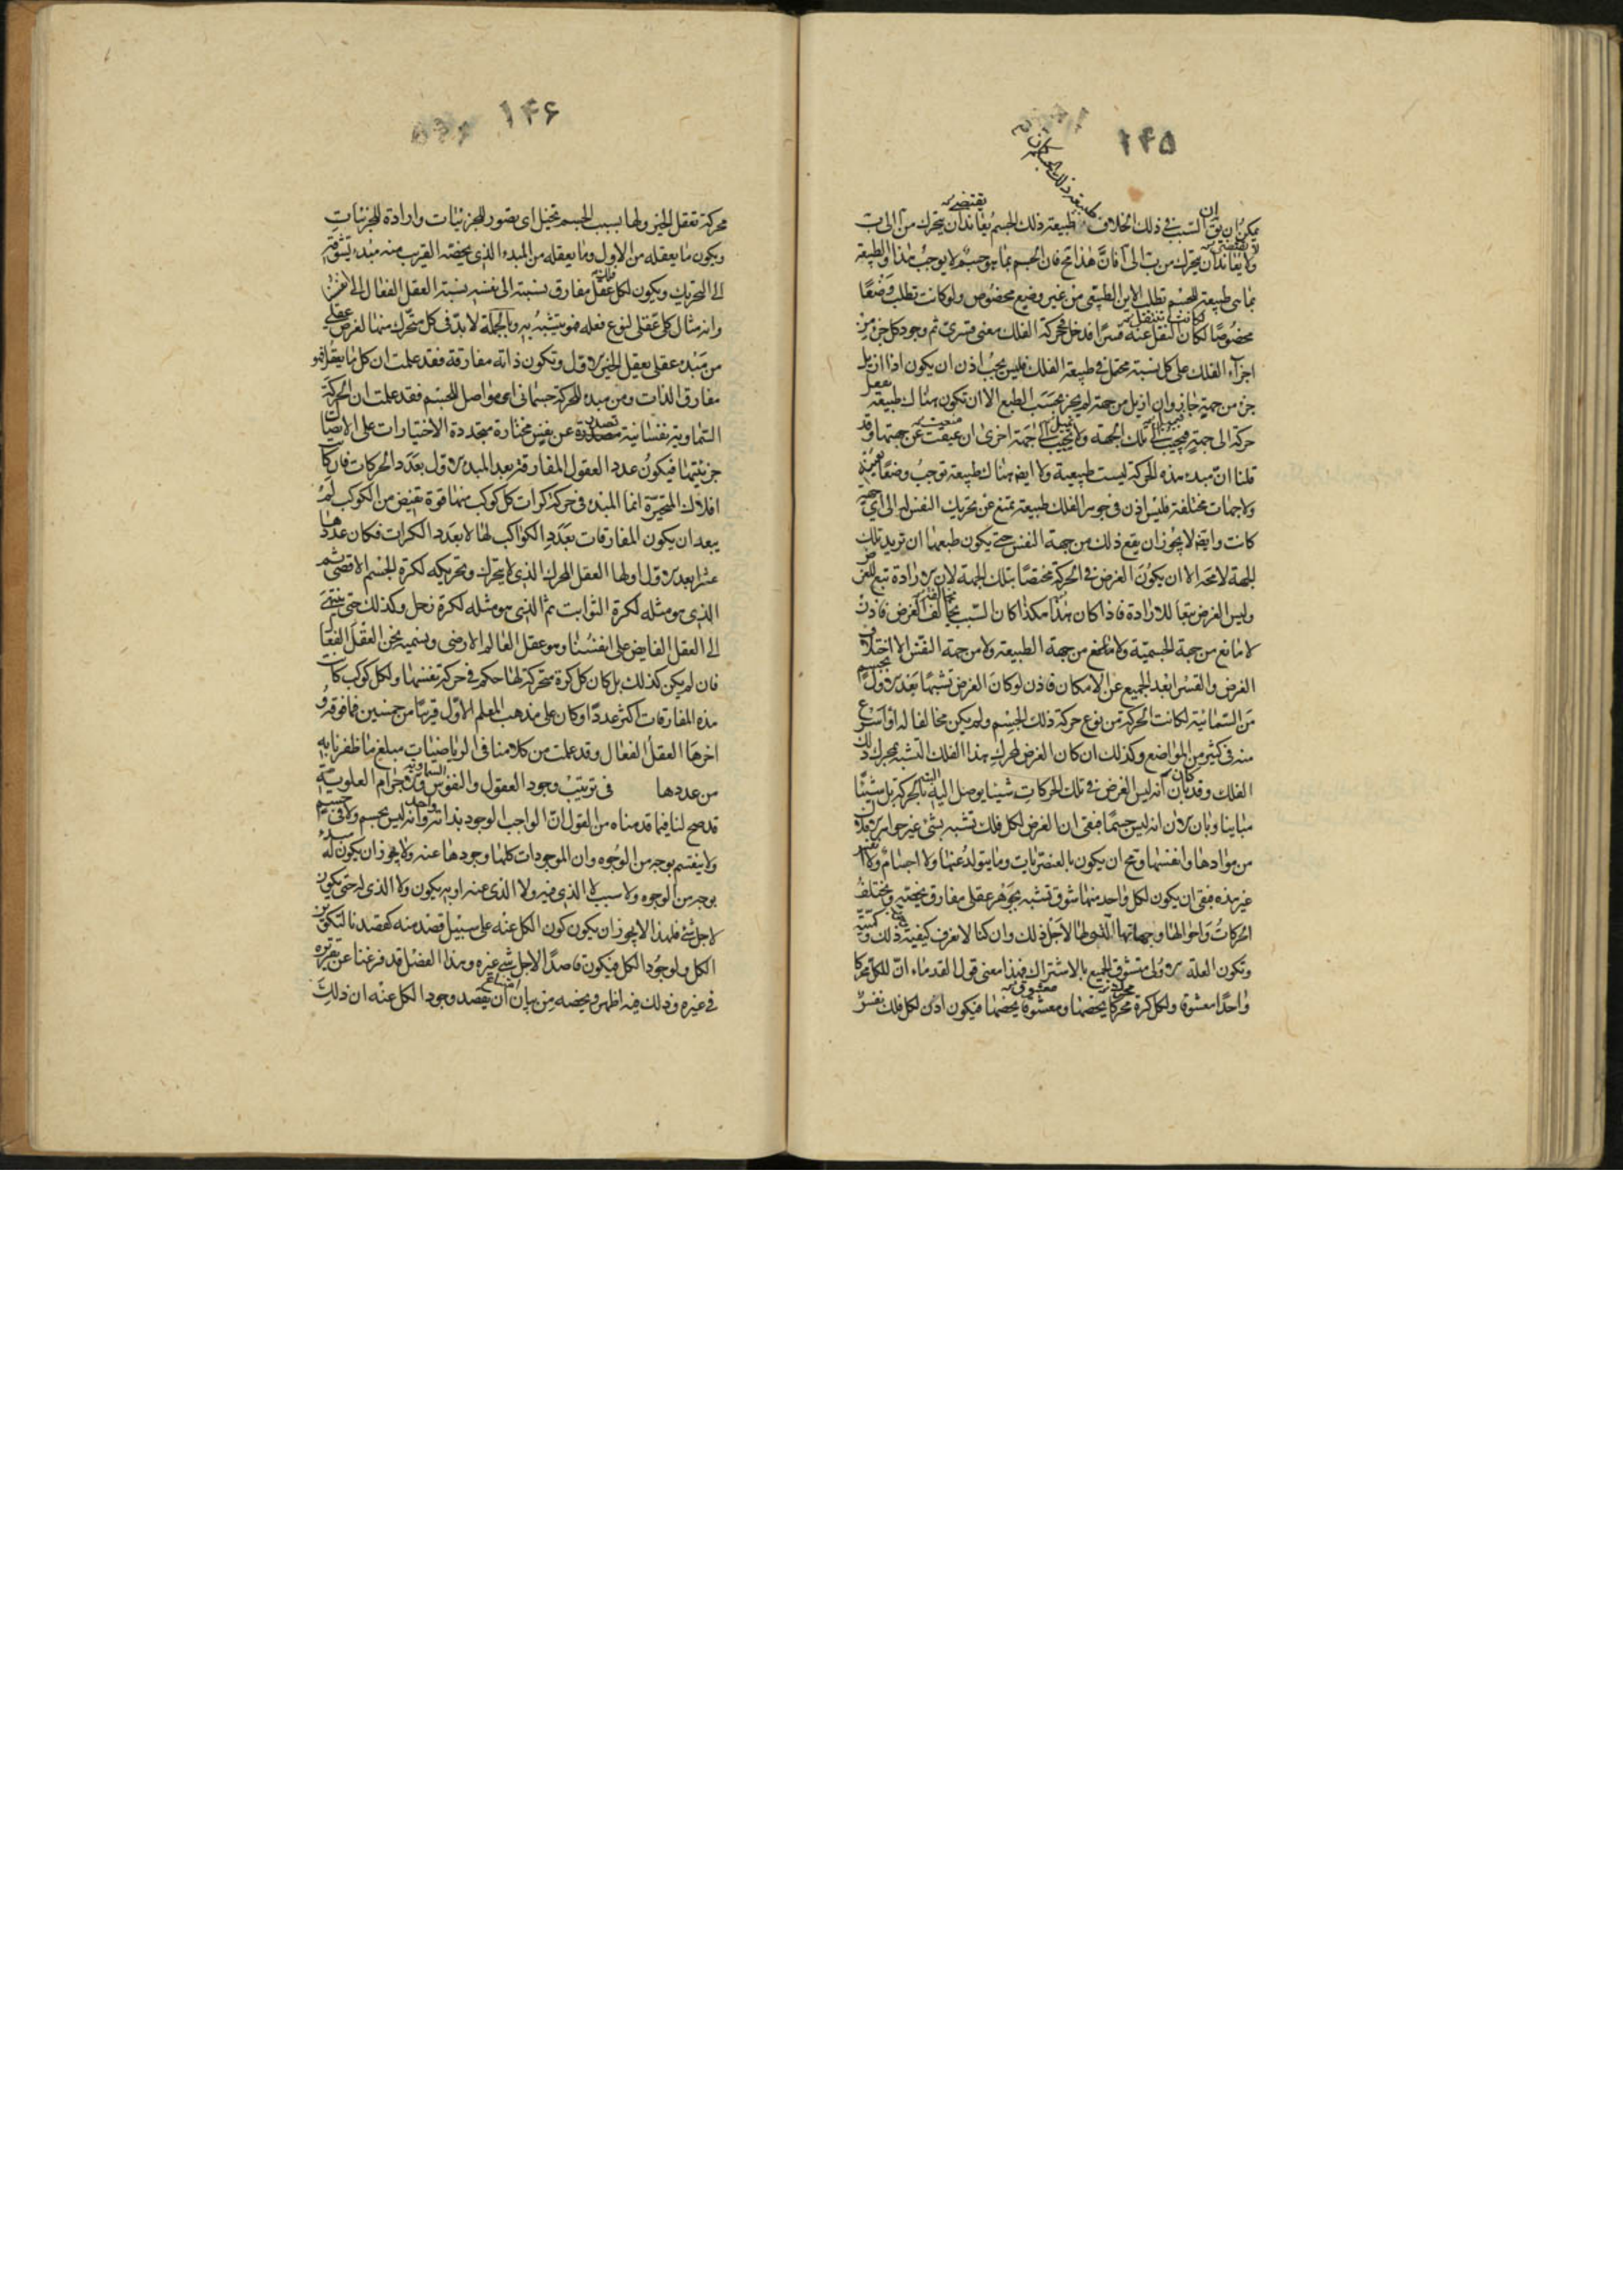 ۱۴۵
يمكن ان يق السبب فى ذلك الخلاف طبيعة ذلك الجسم يعاند ان يتحرك من آ الى ب
ولا يعاند ان يتحرك من ب الى آ فان هذا مح فان الجسم بما هو جسم لا يوجب هذا والطبيعة
بما هى طبيعة للجسم تطلب الاين الطبيعى من غير وضع مخصوص ولو كانت تطلب وضعا
مخصوصا لكان النقل عنه قسرا فدخل فى حركة الفلك معنى قسرى ثم وجود كل جزء من
اجزاء الفلك على كل نسبة محتمل فى طبيعة الفلك فليس يجب اذن ان يكون اذا ازيل
جزء من جهة جاز وان ازيل من جهة لم يجز بحسب الطبع الا ان تكون هناك طبيعة تفعل
حركة الى جهة فيجيب الى تلك الجهة ولا يجيب الى جهة اخرى ان عيقت عن جهتها وقد
قلنا ان مبدء هذه الحركة ليست طبيعية ولا ايضا هناك طبيعة توجب وضعا بعينه
ولا جهات مختلفة فليس اذن فى جوهر الفلك طبيعة تمنع عن تحريك النفس له الى اى جهة
كانت وايضا لا يجوز ان يقع ذلك من جهة النفس حتى يكون طبعها ان تريد تلك
الجهة لا محه الا ان يكون الغرض فى الحركة مختصا بتلك الجهة لان الارادة تبع للغرض
وليس الغرض تبعا للارادة فاذا كان هذا هكذا كان السبب مخالف الغرض فاذن
لا مانع من جهة الجسمية ولا مانع من جهة الطبيعة ولا من جهة النفس الا اختلاف
الغرض والقسر ابعد الجميع عن الامكان فاذن لو كان الغرض تشبها بعد الاول بجسم
من السمائية لكانت الحركة من نوع حركة ذلك الجسم ولم يكن مخالفا له او اسرع
منه فى كثير من المواضع وكذلك ان كان الغرض لمحرك هذا الفلك التشبه بمحرك ذلك
الفلك وقد كان بان انه ليس الغرض فى تلك الحركات شيئا يوصل اليه بالحركة بل شيئا
مباينا وبان الان انه ليس جسما فبقى ان الغرض لكل فلك تشبه بشئ غير جواهر الافلاك
من موادها وانفسها ومح ان يكون بالعنصريات وما يتولد عنها ولا اجسام ولا انفس
غير هذه فبقى ان يكون لكل واحد منها شوق تشبه بجوهر عقلى مفارق يخصه وتختلف
الحركات واحوالها وجهاتها التى لها لاجل ذلك وان كنا لا نعرف كيفية ذلك وكميته
وتكون العلة الاولى متشوق الجميع بالاشتراك فهذا معنى قول القدماء ان للكل محركا
واحدا معشوقا ولكل كرة محركا يخصها ومعشوقا يخصها فيكون اذن لكل فلك نفس
۱۴۶
محركة تعقل الخير ولها بسبب الجسم تخيل اى تصور للجزئيات وارادة للجزئيات
ويكون ما يعقله من الاول وما يعقله من المبدء الذى يخصه القريب منه مبدء تشوقه
الى التحريك ويكون لكل فلك عقل مفارق نسبته الى نفسه نسبة العقل الفعال الى انفسنا
وانه مثال كلى عقلى لنوع فعله فهو يتشبه به وبالجملة لا بد فى كل متحرك منها لغرض عقلى
من مبدء عقلى يعقل الخير الاول وتكون ذاته مفارقة فقد علمت ان كل ما يعقل فهو
مفارق الذات ومن مبدء للحركة جسمانى اى مواصل للجسم فقد علمت ان الحركة
السماوية نفسانية تصدر عن نفس مختارة متجددة الاختيارات على الاتصال
جزئيتها فيكون عدد العقول المفارقة بعد المبدء الاول بعدد الحركات فان كان
افلاك المتحيرة انما المبدء فى حركة كرات كل كوكب منها قوة تفيض من الكوكب لم
يبعد ان يكون المفارقات بعدد الكواكب لها لا بعدد الكرات فكان عددها
عشرا بعد الاول اولها العقل المحرك الذى لا يتحرك وتحريكه لكرة الجسم الاقصى ثم
الذى هو مثله لكرة الثوابت ثم الذى هو مثله لكرة زحل وكذلك حتى ينتهى
الى العقل الفايض على انفسنا وهو عقل العالم الارضى ونسميه نحن العقل الفعال
فان لم يكن كذلك بل كان كل كرة متحركة لها حكم فى حركة نفسها ولكل كوكب كانت
هذه المفارقات اكثر عددا وكان على مذهب المعلم الاول قريبا من خمسين فما فوقه
اخرها العقل الفعال وقد علمت من كلامنا فى الرياضيات مبلغ ما ظفرنا به
من عددها فى ترتيب وجود العقول والنفوس السماوية والاجرام العلوية
قد صح لنا فيما قدمناه من القول ان الواجب الوجود بذاته واحد وانه ليس بجسم ولا فى جسم
ولا ينقسم بوجه من الوجوه وان الموجودات كلها وجودها عنه ولا يجوز ان يكون له
بوجه من الوجوه ولا سبب لا الذى فيه ولا الذى عنه او به يكون ولا الذى له حتى يكون
لاجل شئ فلهذا لا يجوز ان يكون كون الكل عنه على سبيل قصد منه كقصدنا لتكوين
الكل ولوجود الكل فيكون قاصدا لاجل شئ غيره وهذا الفصل قد فرغنا عن تقريره
فى غيره وذلك فيه اظهر ويخصه من بيان ان يقصد وجود الكل عنه ان ذلك